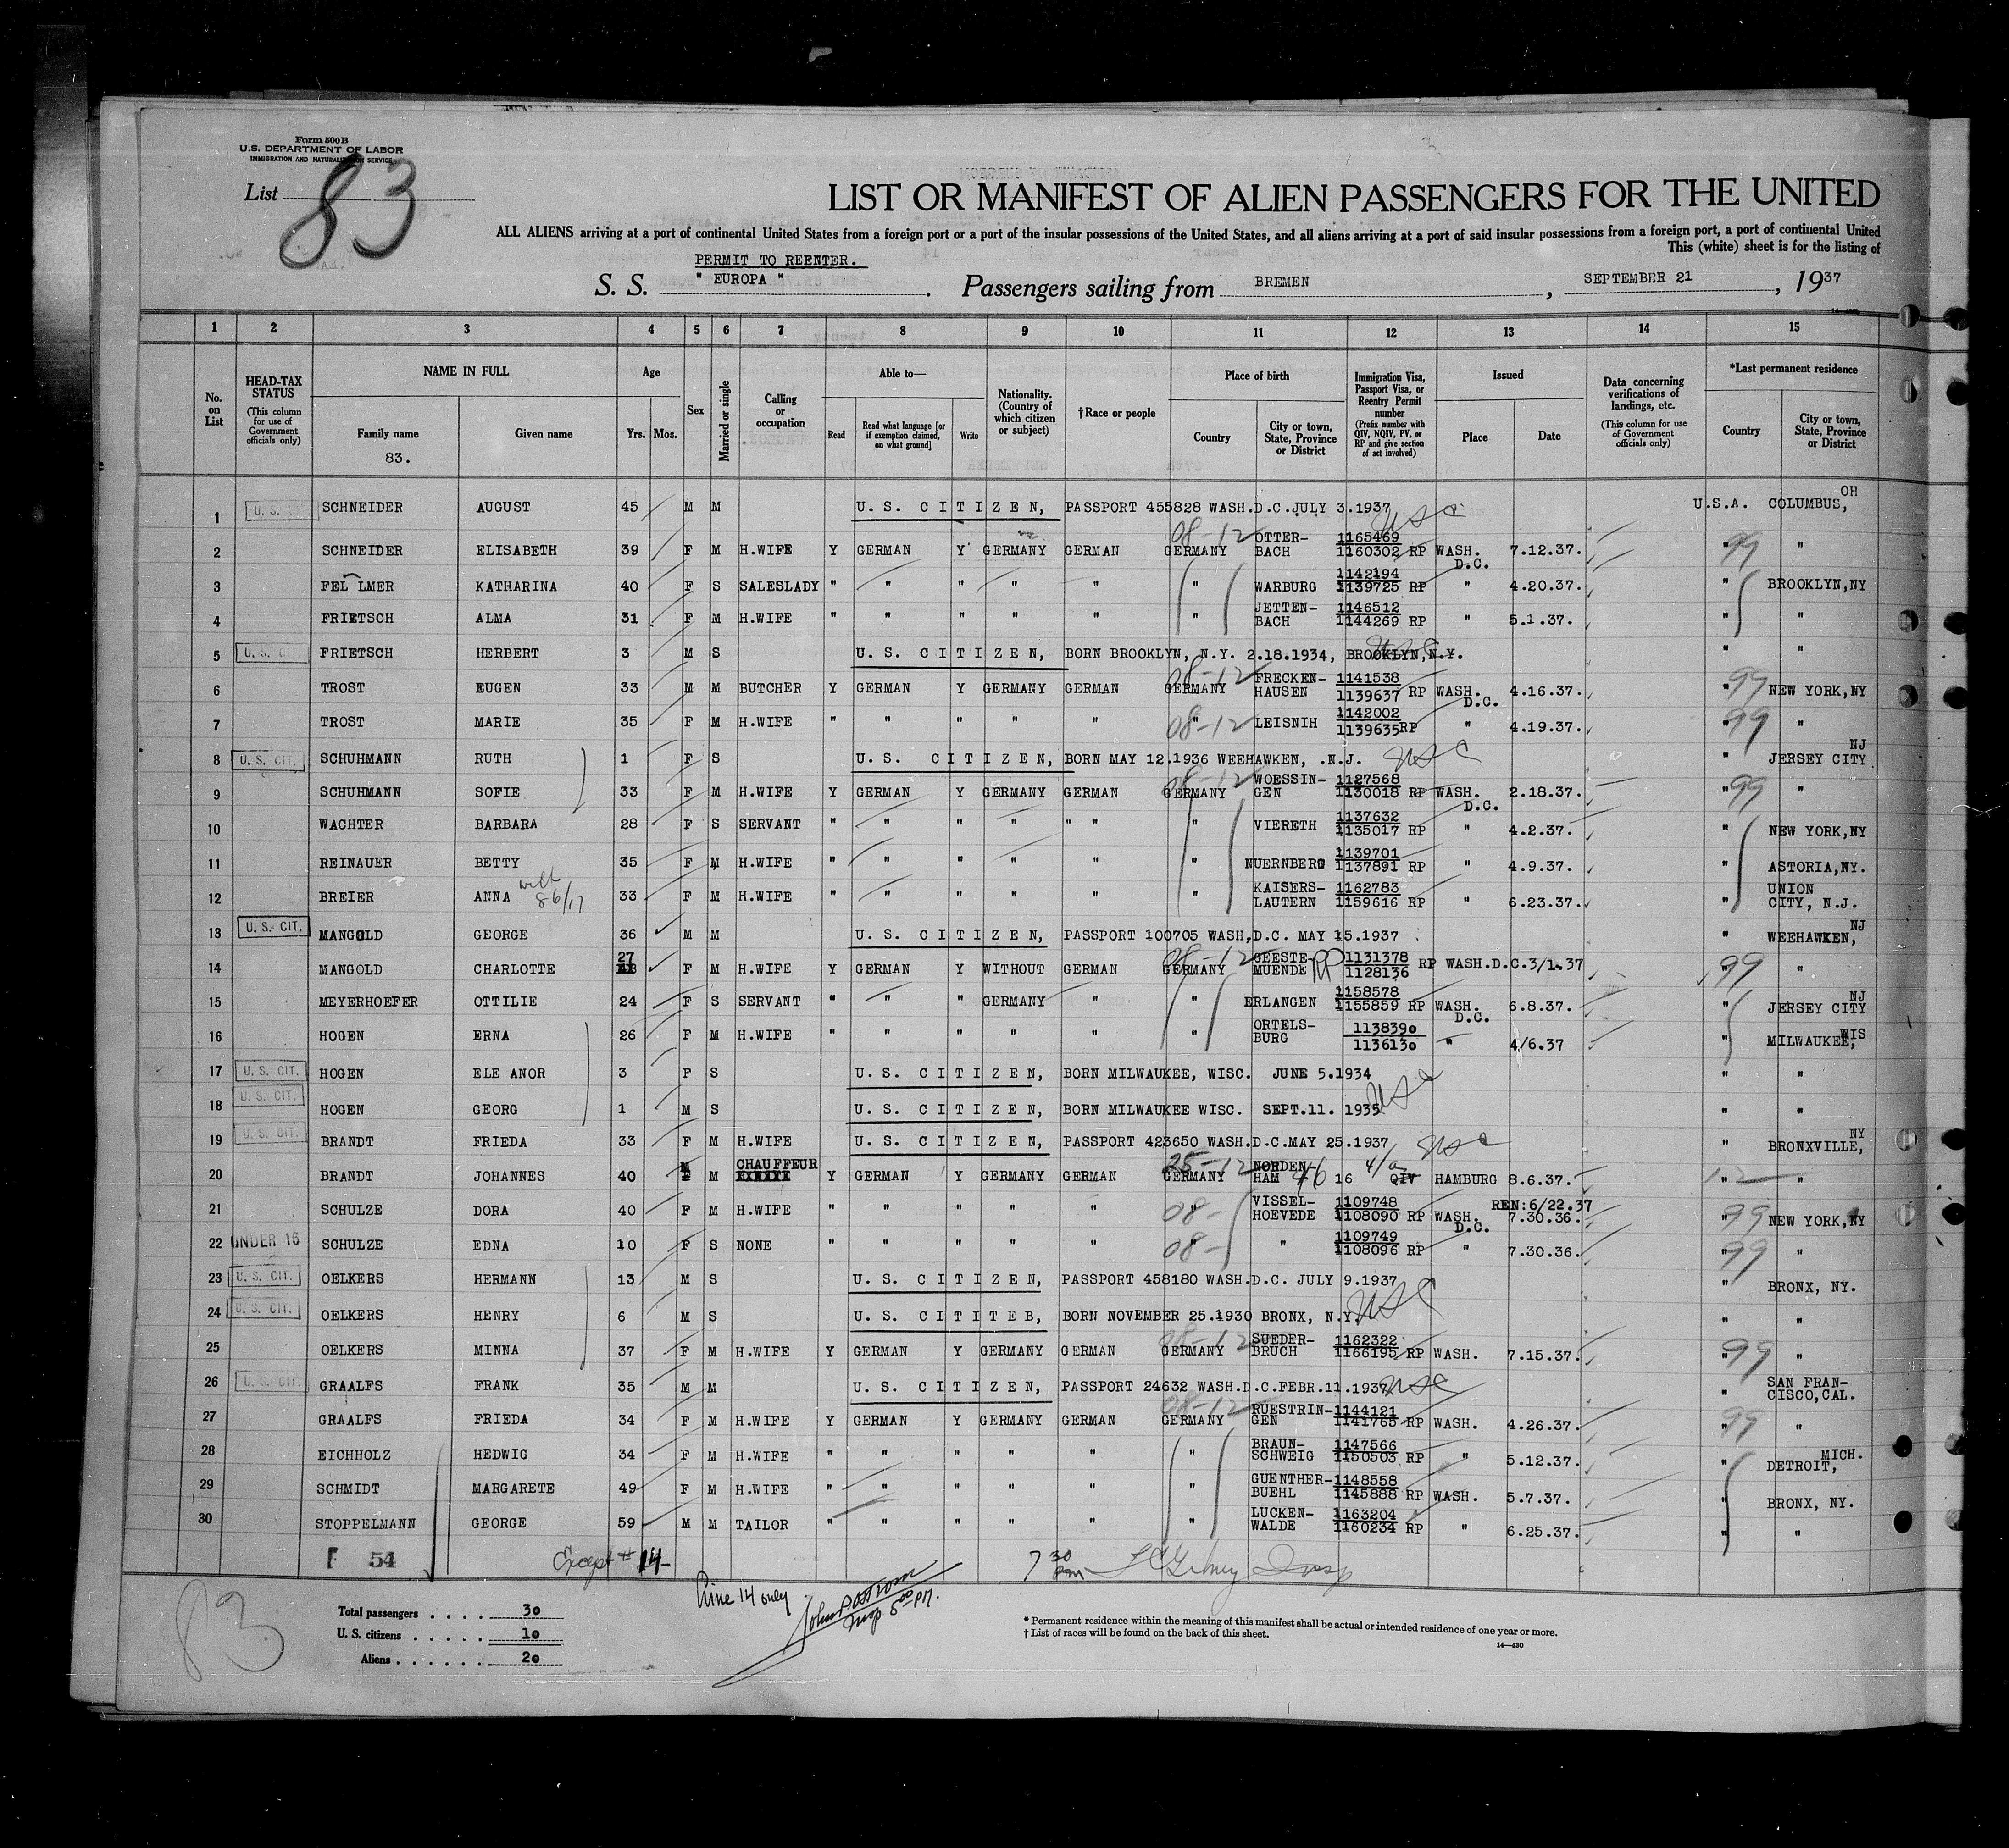 Form 500B
U.S. DEPARTMENT OF LABOR
IMMIGRATION AND NATURALIZATION SERVICE
List 83
LIST OR MANIFEST OF ALIEN PASSENGERS FOR THE UNITED
ALL ALIENS arriving at a port of continental United States from a foreign port or a port of the insular possessions of the United States, and all aliens arriving at a port of said insular possessions from a foreign port, a port of continental United
This (white) sheet is for the listing of
PERMIT TO REENTER.
S. S. " EUROPA " . Passengers sailing from BREMEN , SEPTEMBER 21 , 1937
1 2 3 4 5 6 7 8 9 10 11 12 13 14 15
No. on List
HEAD-TAX STATUS (This column for use of Government officials only)
NAME IN FULL
Family name
83.
Given name
Age
Yrs. Mos.
Sex
Married or single
Calling or occupation
Able to—
Read
Read what language [or if exemption claimed, on what ground]
Write
Nationality. (Country of which citizen or subject)
†Race or people
Place of birth
Country
City or town, State, Province or District
Immigration Visa, Passport Visa, or Reentry Permit number (Prefix number with QIV, NQIV, PV, or RP and give section of act involved)
Issued
Place
Date
Data concerning verifications of landings, etc. (This column for use of Government officials only)
*Last permanent residence
Country
City or town, State, Province or District
1 U. S. SCHNEIDER AUGUST 45 M M U. S. CITIZEN, PASSPORT 455828 WASH.D.C.JULY 3.1937 USC U.S.A. COLUMBUS, OH
2 SCHNEIDER ELISABETH 39 F M H.WIFE Y GERMAN Y GERMANY GERMAN 08-12 GERMANY OTTER-BACH 1165469 1160302 RP WASH. D.C. 7.12.37. " 99 "
3 FEL LMER KATHARINA 40 F S SALESLADY " " " " " " WARBURG 1142194 1139725 RP " 4.20.37. " BROOKLYN,NY
4 FRIETSCH ALMA 31 F M H.WIFE " " " " " " JETTEN-BACH 1146512 1144269 RP " 5.1.37. " "
5 U. S. C FRIETSCH HERBERT 3 M S U. S. CITIZEN, BORN BROOKLYN, N.Y. 2.18.1934, BROOKLYN,N.Y. " "
6 TROST EUGEN 33 M M BUTCHER Y GERMAN Y GERMANY GERMAN 08-12 GERMANY FRECKEN-HAUSEN 1141538 1139637 RP WASH. D.C. 4.16.37. " 99 NEW YORK,NY
7 TROST MARIE 35 F M H.WIFE " " " " " 08-12 " LEISNIH 1142002 1139635RP " 4.19.37. " 99 "
8 U. S. CIT. SCHUHMANN RUTH 1 F S U. S. CITIZEN, BORN MAY 12.1936 WEEHAWKEN, .N.J. USC " JERSEY CITY NJ
9 SCHUHMANN SOFIE 33 F M H.WIFE Y GERMAN Y GERMANY GERMAN 08-12 GERMANY WOESSIN-GEN 1127568 1130018 RP WASH. D.C. 2.18.37. " 99 "
10 WACHTER BARBARA 28 F S SERVANT " " " " " " " VIERETH 1137632 1135017 RP " 4.2.37. " NEW YORK,NY
11 REINAUER BETTY 35 F M H.WIFE " " " " " " NUERNBERG 1139701 1137891 RP " 4.9.37. " ASTORIA,NY.
12 BREIER ANNA with 86/17 33 F M H.WIFE " " " " " " KAISERS-LAUTERN 1162783 1159616 RP " 6.23.37. " UNION CITY, N.J.
13 U. S. CIT. MANGOLD GEORGE 36 M M U. S. CITIZEN, PASSPORT 100705 WASH,D.C. MAY 15.1937 " WEEHAWKEN, NJ
14 MANGOLD CHARLOTTE 27 F M H.WIFE Y GERMAN Y WITHOUT GERMAN 08-12 GERMANY GEESTE-MUENDE RP 1131378 1128136 RP WASH.D.C.3/1.37 " 99 "
15 MEYERHOEFER OTTILIE 24 F S SERVANT " " " GERMANY " " ERLANGEN 1158578 1155859 RP WASH. D.C. 6.8.37. " JERSEY CITY NJ
16 HOGEN ERNA 26 F M H.WIFE " " " " " " ORTELS-BURG 1138390 1136130 " 4/6.37 " MILWAUKEE, WIS
17 U. S. CIT. HOGEN ELE ANOR 3 F S U. S. CITIZEN, BORN MILWAUKEE, WISC. JUNE 5.1934 " "
18 U. S. CIT. HOGEN GEORG 1 M S U. S. CITIZEN, BORN MILWAUKEE WISC. SEPT.11. 1935 USC " "
19 U. S. CIT. BRANDT FRIEDA 33 F M H.WIFE U. S. CITIZEN, PASSPORT 423650 WASH.D.C.MAY 25.1937 USC " BRONXVILLE, NY
20 BRANDT JOHANNES 40 M M CHAUFFEUR Y GERMAN Y GERMANY GERMAN 25-12 GERMANY NORDEN-HAM 16 4/a QIV HAMBURG 8.6.37. " 12 "
21 SCHULZE DORA 40 F M H.WIFE " " " " " 08- VISSEL-HOEVEDE 1109748 1108090 RP WASH. D.C. REN:6/22.37 7.30.36. " 99 NEW YORK,NY
22 UNDER 16 SCHULZE EDNA 10 F S NONE " " " " " 08- " " 1109749 1108096 RP " 7.30.36. " 99 "
23 U. S. CIT. OELKERS HERMANN 13 M S U. S. CITIZEN, PASSPORT 458180 WASH.D.C. JULY 9.1937 " BRONX, NY.
24 U. S. CIT. OELKERS HENRY 6 M S U. S. CITITEB, BORN NOVEMBER 25.1930 BRONX, N.Y. USC " "
25 OELKERS MINNA 37 F M H.WIFE Y GERMAN Y GERMANY GERMAN 08-12 GERMANY SUEDER-BRUCH 1162322 1166195 RP WASH. 7.15.37. " 99 "
26 U. S. CIT. GRAALFS FRANK 35 M M U. S. CITIZEN, PASSPORT 24632 WASH.D.C.FEBR.11.1937 USC " SAN FRAN-CISCO,CAL.
27 GRAALFS FRIEDA 34 F M H.WIFE Y GERMAN Y GERMANY GERMAN 08-12 GERMANY RUESTRIN-GEN 1144121 1141765 RP WASH. 4.26.37. " 99 "
28 EICHHOLZ HEDWIG 34 F M H.WIFE " " " " " " BRAUN-SCHWEIG 1147566 1150503 RP " 5.12.37. " DETROIT, MICH.
29 SCHMIDT MARGARETE 49 F M H.WIFE " " " " " " GUENTHER-BUEHL 1148558 1145888 RP WASH. 5.7.37. " BRONX, NY.
30 STOPPELMANN GEORGE 59 M M TAILOR " " " " " " LUCKEN-WALDE 1163204 1160234 RP " 6.25.37. " "
F 54 Except # 14- 7 30 pm
Line 14 only
Insp 5 00 PM.
83
Total passengers . . . . 30
U. S. citizens . . . . . 10
Aliens . . . . . . 20
* Permanent residence within the meaning of this manifest shall be actual or intended residence of one year or more.
† List of races will be found on the back of this sheet.
14—430